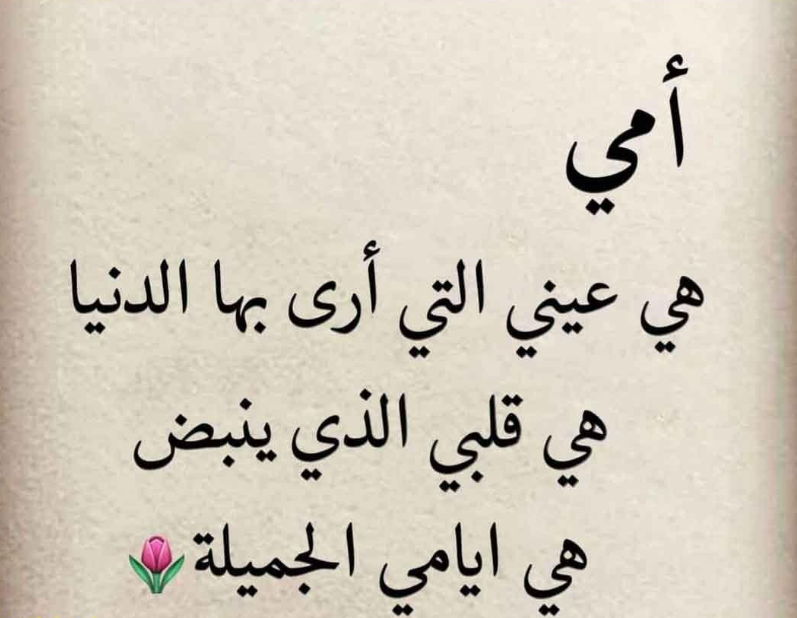 أمي
هي عيني التي أرى بها الدنيا
هي قلبي الذي ينبض
هي ايامي الجميلة🌷